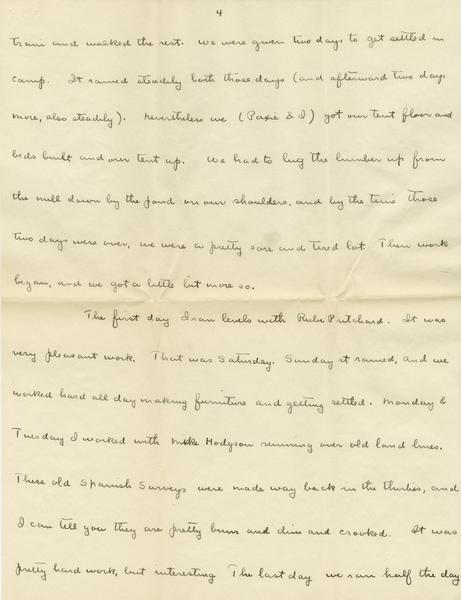 4
train and walked the rest. We were given two days to get settled in
camp. It rained steadily both those days (and afterward two days
more, also steadily). Nevertheless we (Paxie & I) got our tent floor and
beds built and our tent up. We had to lug the lumber up from
the mill down by the pond on our shoulders, and by the time those
two days were over, we were a pretty sore and tired lot. Then work
began, and we got a little bit more so.
The first day I ran levels with Rube Pritchard. It was
very pleasant work. That was Saturday. Sunday it rained, and we
worked hard all day making furniture and getting settled. Monday &
Tuesday I worked with Mike Hodgson running over old land lines.
These old Spanish Surveys were made way back in the thirties, and
I can tell you they are pretty bum and dim and crooked. It was
pretty hard work, but interesting The last day we ran half the day